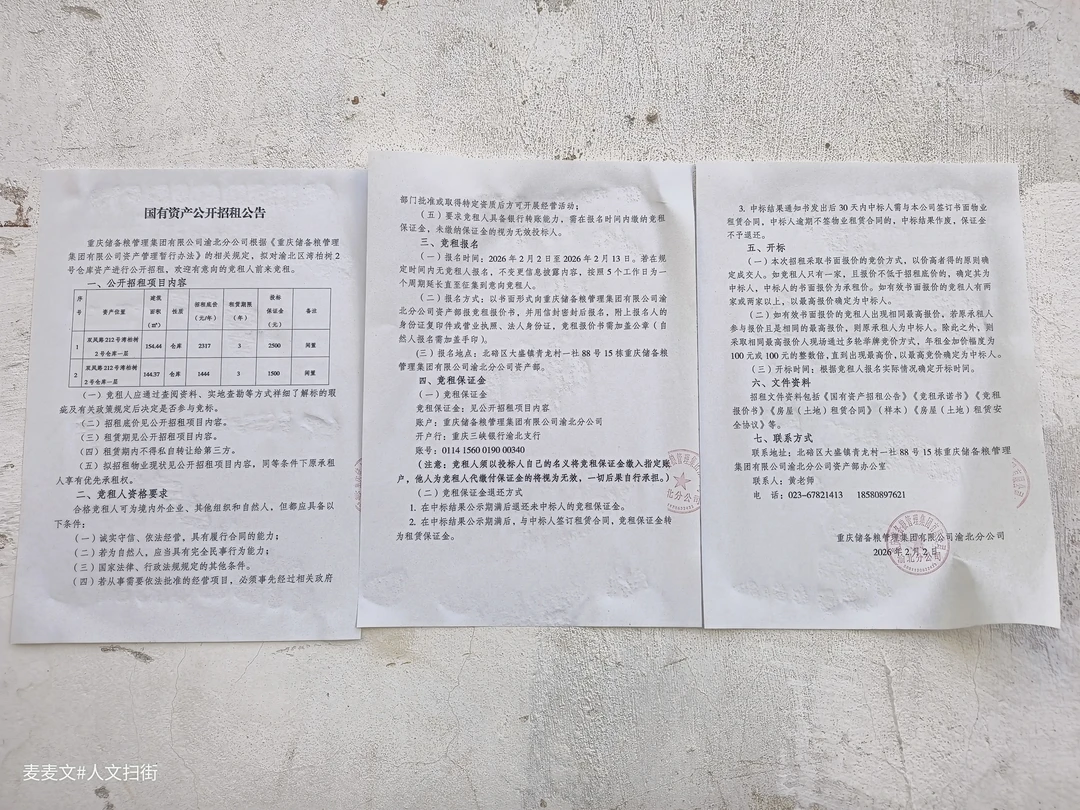 国有资产公开招租公告
重庆储备粮管理集团有限公司渝北分公司根据《重庆储备粮管理
集团有限公司资产管理暂行办法》的相关规定，拟对渝北区湾柏树2
号仓库资产进行公开招租，欢迎有意向的竞租人前来竞租。
一、公开招租项目内容
序号 资产位置 建筑面积（㎡） 性质 招租底价（元/年） 租赁期限（年） 投标保证金（元） 备注
1 双凤路212号湾柏树2号仓库一层 154.44 仓库 2317 3 2500 闲置
2 双凤路212号湾柏树2号仓库一层 144.37 仓库 1444 3 1500 闲置
（一）竞租人应通过查阅资料、实地查勘等方式祥细了解标的瑕
疵及有关政策规定后决定是否参与竞标。
（二）招租底价见公开招租项目内容。
（三）租赁期见公开招租项目内容。
（四）租赁期内不得私自转让给第三方。
（五）拟招租物业现状见公开招租项目内容，同等条件下原承租
人享有优先承租权。
二、竞租人资格要求
合格竞租人可为境内外企业、其他组织和自然人，但都应具备以
下条件：
（一）诚实守信、依法经营，具有履行合同的能力；
（二）若为自然人，应当具有完全民事行为能力；
（三）国家法律、行政法规规定的其他条件。
（四）若从事需要依法批准的经营项目，必须事先经过相关政府
部门批准或取得特定资质后方可开展经营活动；
（五）要求竞租人具备银行转账能力，需在报名时间内缴纳竞租
保证金，未缴纳保证金的视为无效投标人。
三、竞租报名
（一）报名时间：2026年2月2日至2026年2月13日。若在规
定时间内无竞租人报名，不变更信息披露内容，按照5个工作日为一
个周期延长直至征集到意向竞租人。
（二）报名方式：以书面形式向重庆储备粮管理集团有限公司渝
北分公司资产部报竞租报价书，并用信封密封后报名，附上报名人的
身份证复印件或营业执照、法人身份证，竞租报价书需加盖公章（自
然人报名需加盖手印）。
（三）报名地点：北碚区大盛镇青龙村一社88号15栋重庆储备粮
管理集团有限公司渝北分公司资产部。
四、竞租保证金
（一）竞租保证金
竞租保证金：见公开招租项目内容
账户：重庆储备粮管理集团有限公司渝北分公司
开户行：重庆三峡银行渝北支行
账号：0114 1560 0190 00340
（注意：竞租人须以投标人自己的名义将竞租保证金缴入指定账
户，他人为竞租人代缴付保证金的将视为无效，一切后果自行承担。）
（二）竞租保证金退还方式
1. 在中标结果公示期满后退还未中标人的竞租保证金。
2. 在中标结果公示期满后，与中标人签订租赁合同，竞租保证金转
为租赁保证金。
3. 中标结果通知书发出后30天内中标人需与本公司签订书面物业
租赁合同，中标人逾期不签物业租赁合同的，中标结果作废，保证金
不予退还。
五、开标
（一）本次招租采取书面报价的竞价方式，以价高者得的原则确
定成交人。如竞租人只有一家，且报价不低于招租底价的，确定其为
中标人，中标人的书面报价为承租价。如有效书面报价的竞租人有两
家或两家以上，以最高报价确定为中标人。
（二）如有效书面报价的竞租人出现相同最高报价，若原承租人
参与报价且是相同的最高报价，则原承租人为中标人。除此之外，则
采取相同最高报价人现场通过多轮举牌竞价方式，年租金加价幅度为
100元或100元的整数倍，直到出现最高价，以最高竞价确定为中标人。
（三）开标时间：根据竞租人报名实际情况确定开标时间。
六、文件资料
招租文件资料包括《国有资产招租公告》《竞租承诺书》《竞租
报价书》《房屋（土地）租赁合同》（样本）《房屋（土地）租赁安
全协议》等。
七、联系方式
联系地址：北碚区大盛镇青龙村一社88号15栋重庆储备粮管理
集团有限公司渝北分公司资产部办公室
联系人：黄老师
电 话：023-67821413 18580897621
重庆储备粮管理集团有限公司渝北分公司
2026年2月2日
麦麦文#人文扫街